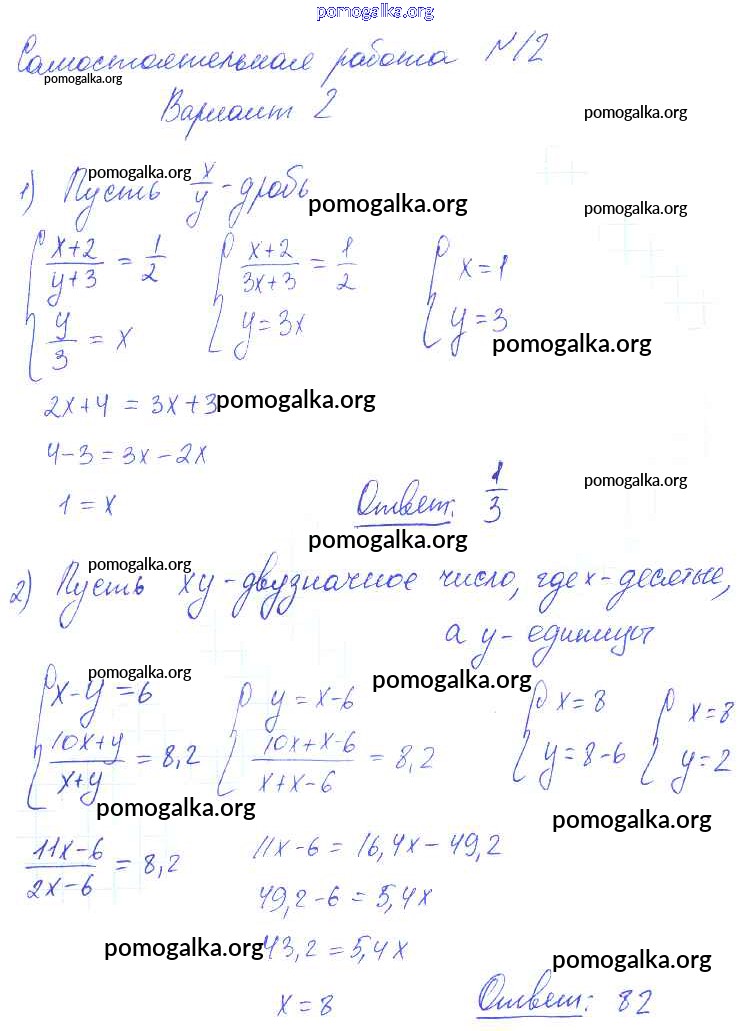 pomogalka.org
Самостоятельная работа №12
pomogalka.org
Вариант 2
pomogalka.org
pomogalka.org
1) Пусть x/y - дробь
pomogalka.org
pomogalka.org
{ (x+2)/(y+3) = 1/2
y/3 = x
{ (x+2)/(3x+3) = 1/2
y = 3x
{ x = 1
y = 3
pomogalka.org
2x+4 = 3x+3
pomogalka.org
4-3 = 3x-2x
1 = x
Ответ: 1/3
pomogalka.org
pomogalka.org
pomogalka.org
2) Пусть xy - двузначное число, где x - десятые,
а y - единицы
pomogalka.org
pomogalka.org
{ x-y = 6
(10x+y)/(x+y) = 8,2
{ y = x-6
(10x+x-6)/(x+x-6) = 8,2
{ x = 8
y = 8-6
{ x = 8
y = 2
pomogalka.org
pomogalka.org
(11x-6)/(2x-6) = 8,2
11x-6 = 16,4x-49,2
49,2-6 = 5,4x
pomogalka.org
43,2 = 5,4x
pomogalka.org
x = 8
Ответ: 82